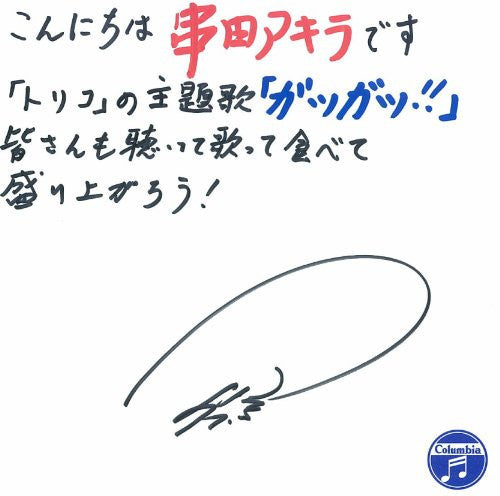 こんにちは 串田アキラです
「トリコ」の主題歌「ガツガツ!!」
皆さんも聴いて歌って食べて
盛り上がろう!
Columbia